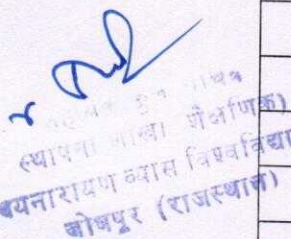 (स्थापना शाखा शैक्षणिक)
जयनारायण व्यास विश्वविद्या
जोधपुर (राजस्थान)